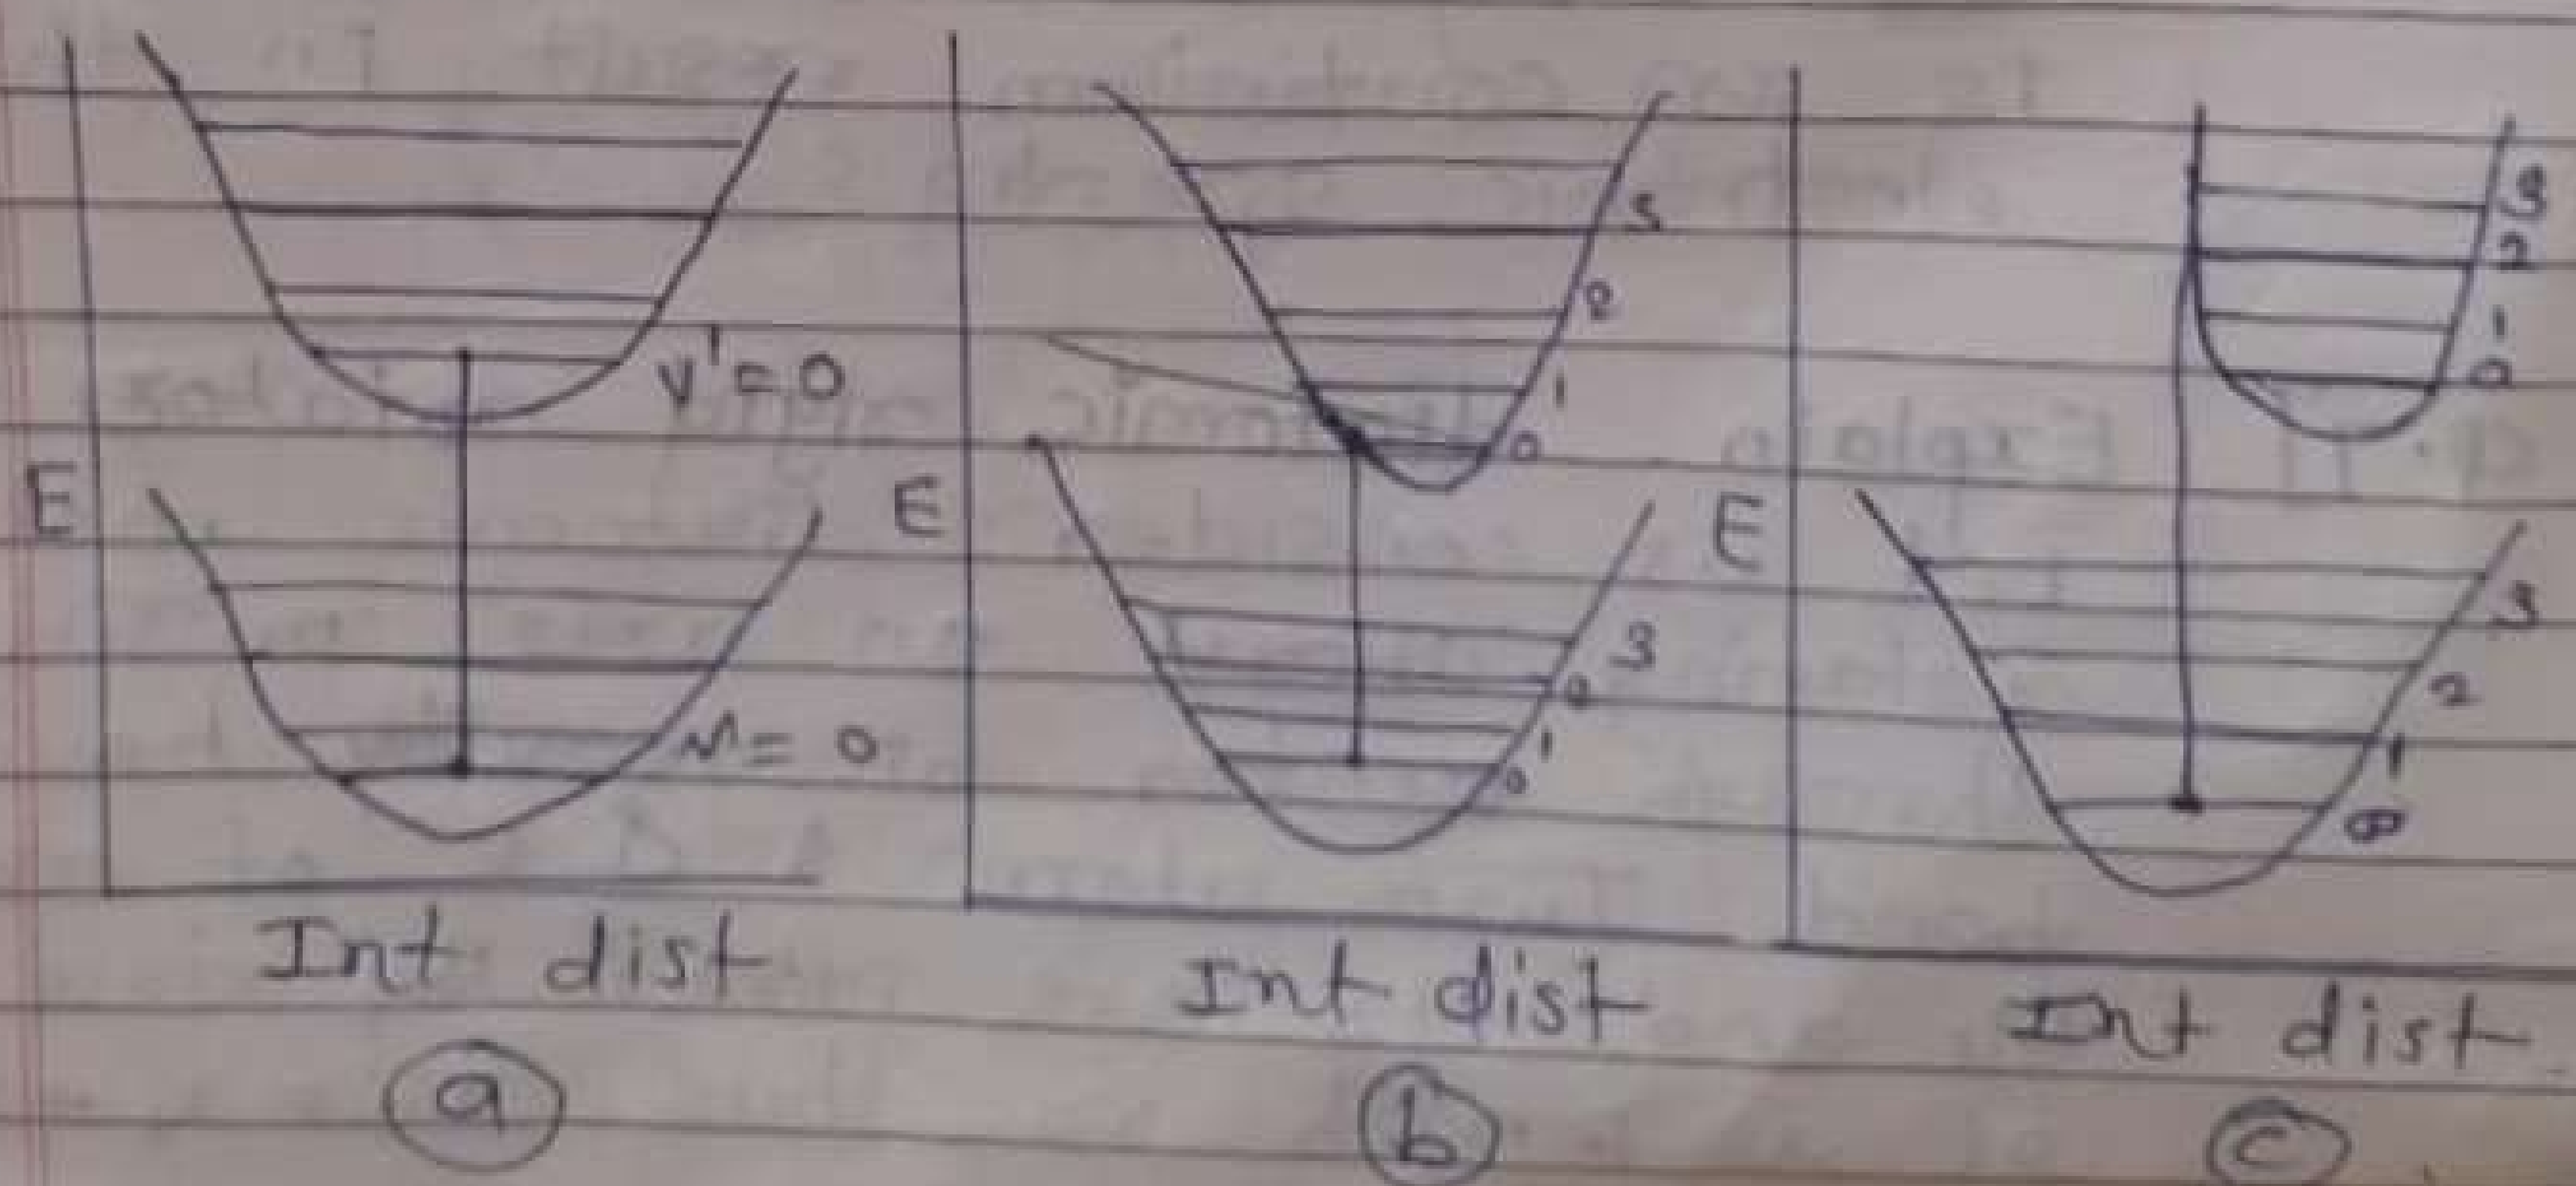 E
v' = 0
v = 0
Int dist
a
E
3
2
1
0
3
2
1
0
Int dist
b
E
3
2
1
0
3
2
1
0
Int dist
c